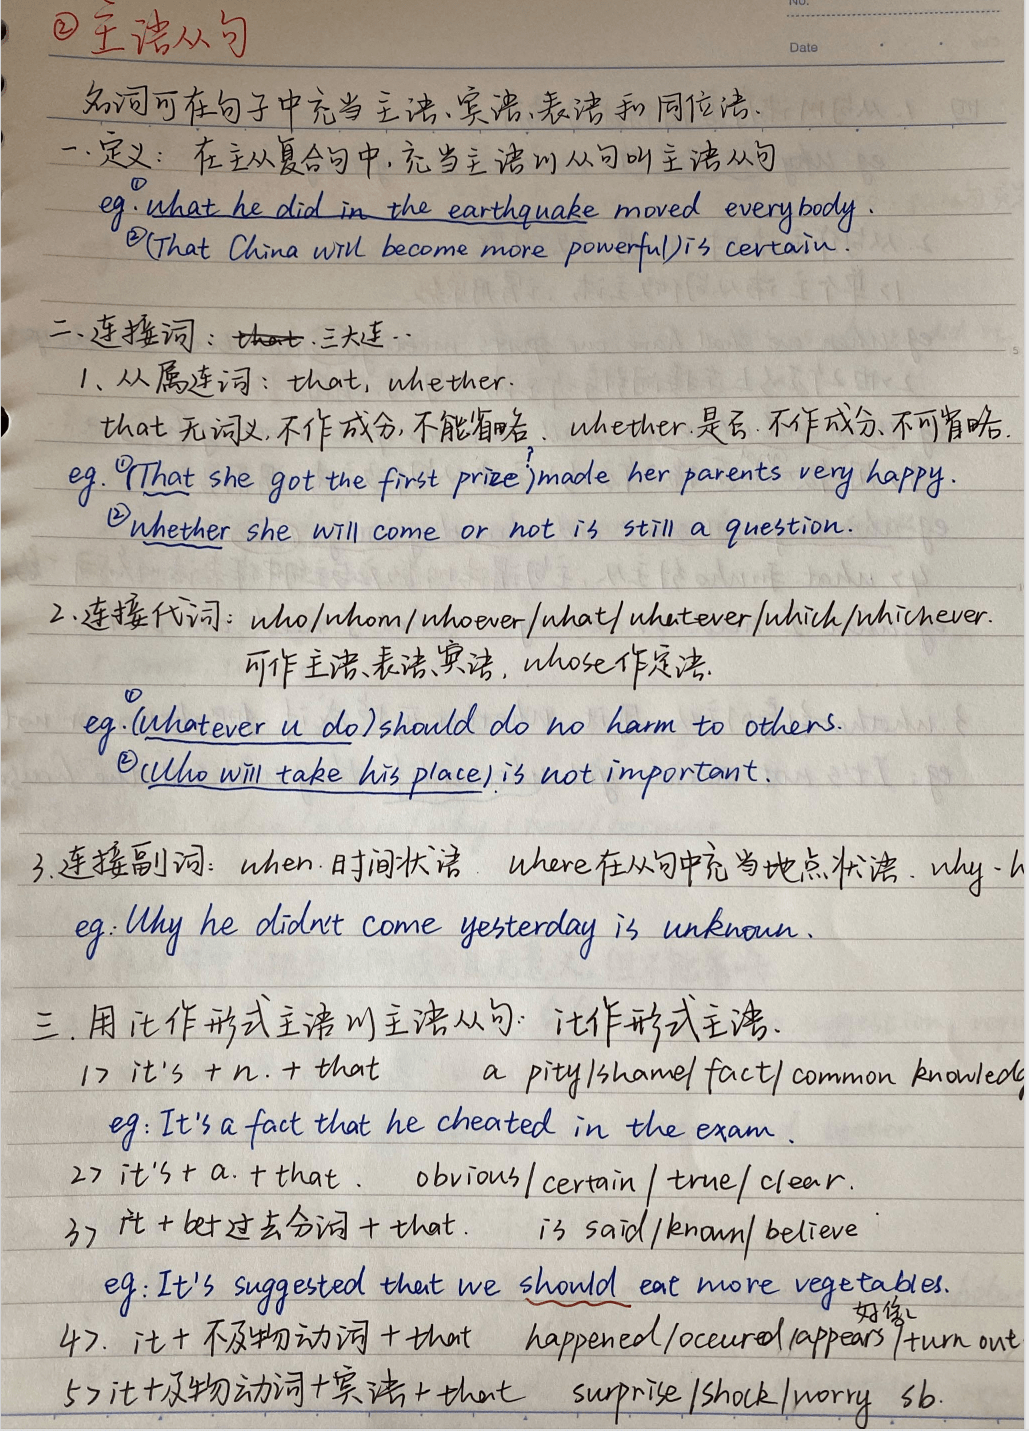 No.
Date
② 主语从句
名词可在句子中充当主语、宾语、表语和同位语.
一.定义: 在主从复合句中,充当主语的从句叫主语从句
eg.①what he did in the earthquake moved everybody.
②(That China will become more powerful) is certain.
二、连接词: that. 三大连..
1、从属连词: that, whether.
that 无词义,不作成分,不能省略、whether.是否.不作成分、不可省略.
eg.①(That she got the first prize?) made her parents very happy.
②whether she will come or not is still a question.
2.连接代词: who/whom/whoever/what/whatever/which/whichever.
可作主语、表语、宾语, whose作定语.
eg.①(whatever u do) should do no harm to others.
②(Who will take his place) is not important.
3.连接副词: when.时间状语 where在从句中充当地点状语. why-
eg: Why he didn't come yesterday is unknown.
三.用it作形式主语的主语从句: it作形式主语.
1> it's + n. + that a pity/shame/fact/common knowledg
eg: It's a fact that he cheated in the exam.
2> it's + a. + that. obvious/certain/true/clear.
3> it + be+过去分词 + that. is said/known/believe
eg: It's suggested that we should eat more vegetables.
好像
4>. it + 不及物动词 + that happened/occured/appears/turn out
5> it+及物动词+宾语+that surprise/shock/worry sb.